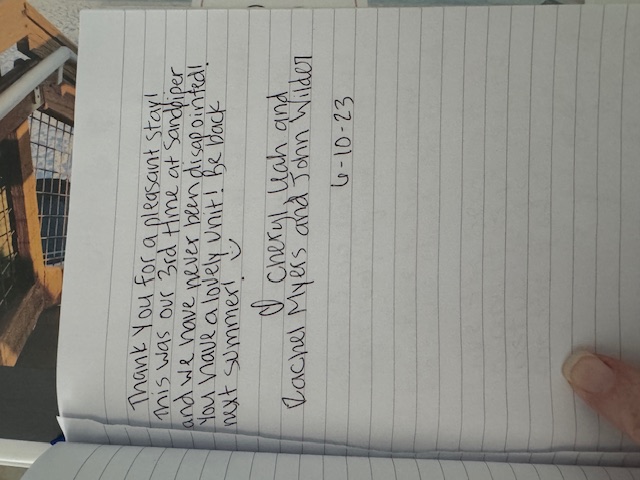 Thank you for a pleasant stay!
This was our 3rd time at Sandpiper
and we have never been disappointed!
You have a lovely unit! Be back
next summer! :)
♡ Cheryl, Leah and
Rachel Myers and John Wilder
6-10-23